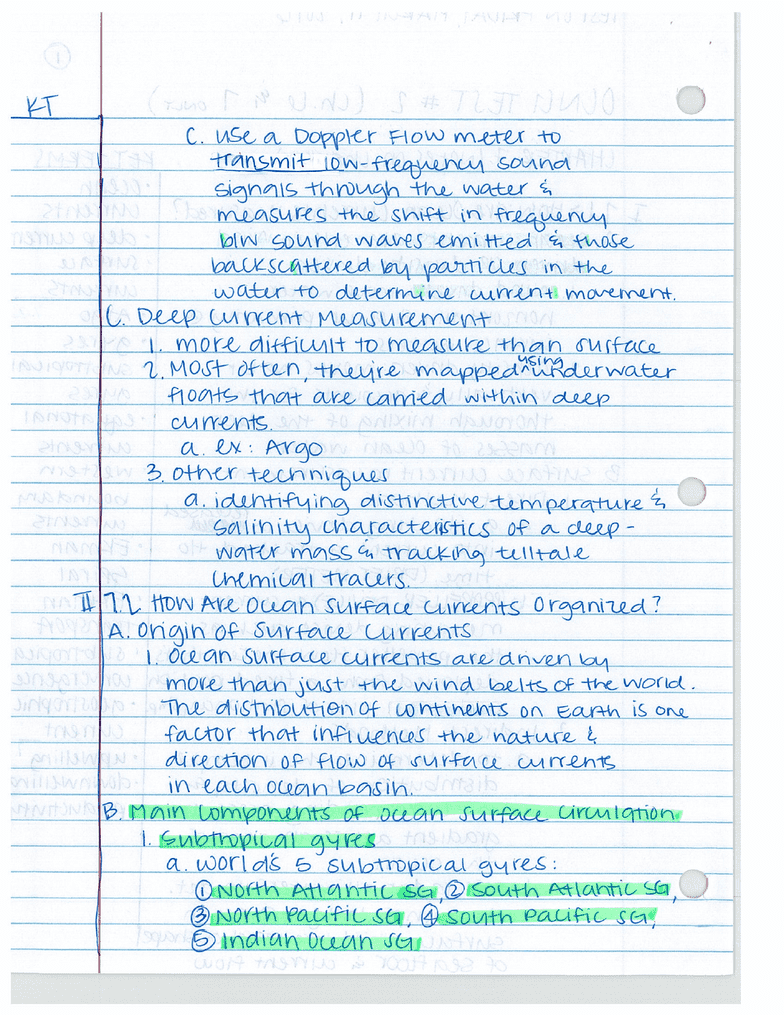 KT
C. use a Doppler Flow meter to
transmit low-frequency sound
signals through the water &
measures the shift in frequency
b/w sound waves emitted & those
backscattered by particles in the
water to determine current movement.
C. Deep Current Measurement
1. more difficult to measure than surface
2. Most often, they're mapped using underwater
floats that are carried within deep
currents.
a. ex: Argo
3. other techniques
a. identifying distinctive temperature &
salinity characteristics of a deep-
water mass & tracking telltale
chemical tracers.
II 7.2 How Are Ocean Surface Currents Organized?
A. Origin of Surface Currents
1. Ocean surface currents are driven by
more than just the wind belts of the world.
The distribution of continents on Earth is one
factor that influences the nature &
direction of flow of surface currents
in each ocean basin.
B. Main Components of Ocean Surface Circulation
1. Subtropical gyres
a. World's 5 subtropical gyres:
① North Atlantic SG, ② South Atlantic SG,
③ North Pacific SG, ④ South Pacific SG,
⑤ Indian Ocean SG